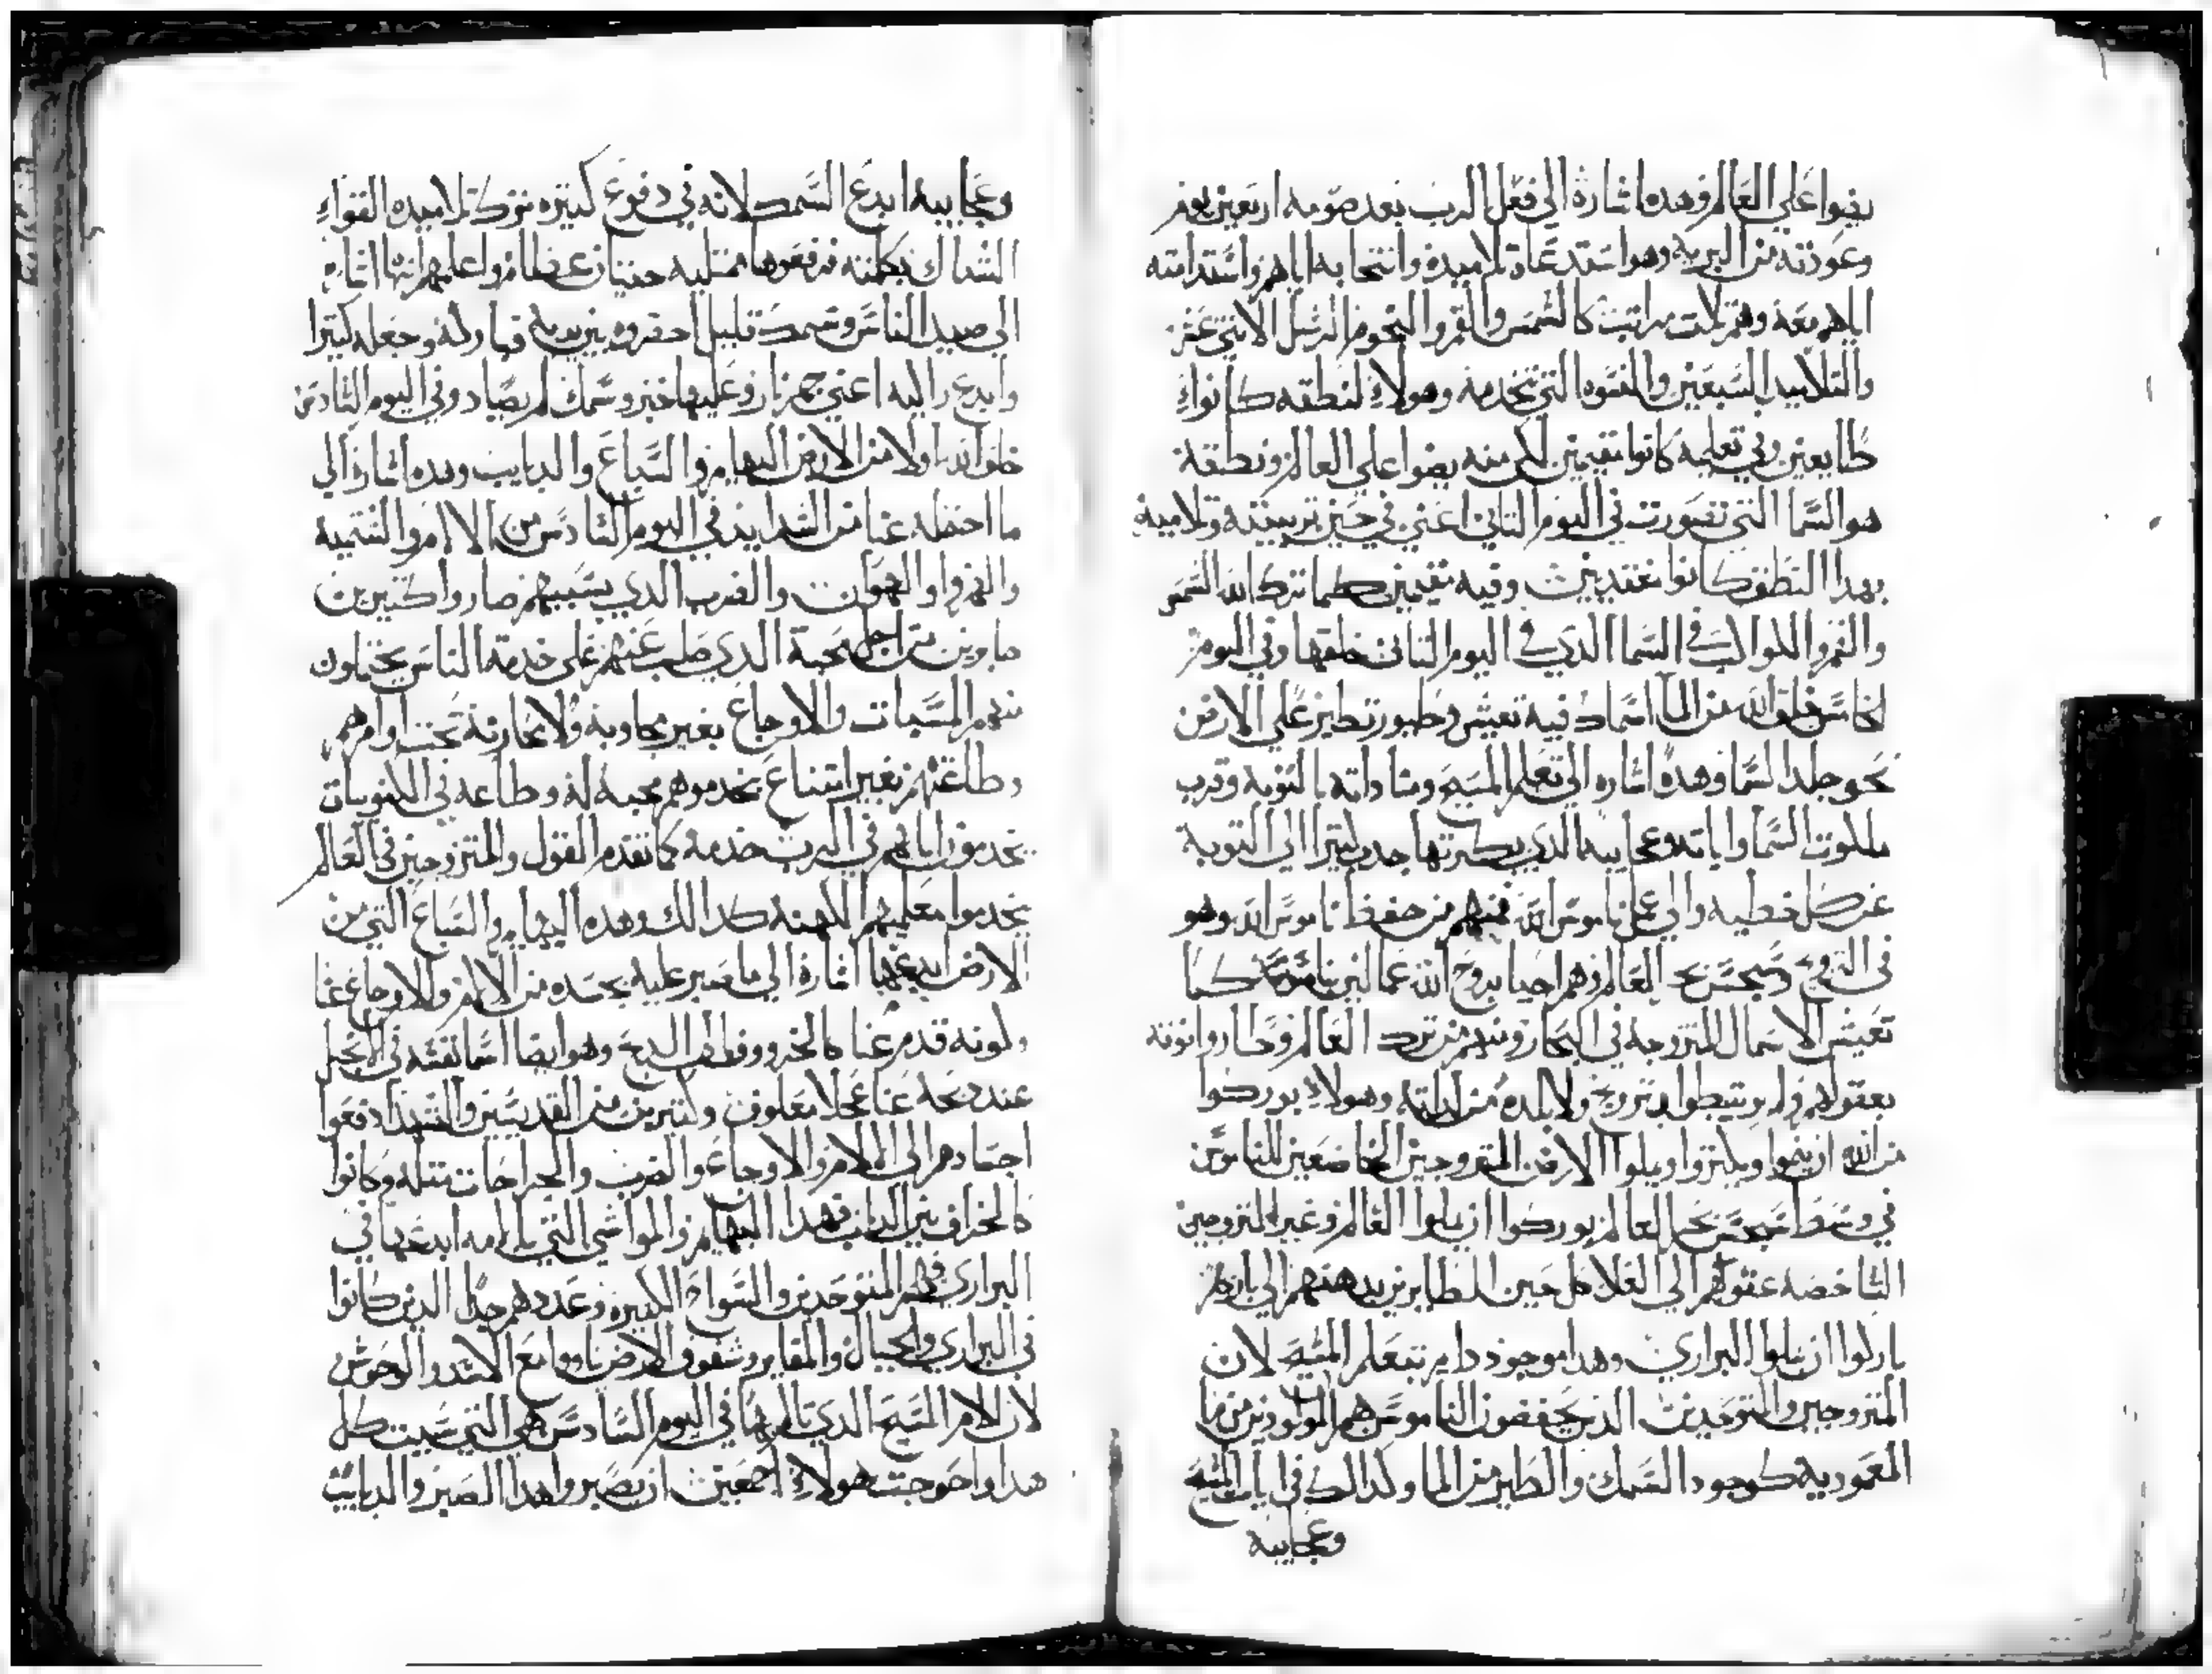 يضوا علي العالم وهده اشارة الي فعل الرب بعد صومه اربعين يوم
وعودته من البريه وهو استدعاه تلاميده وانتخابه اياهم واستدامته
اياهم معه وهم تلات مراتب كالشمس والقمر والنجوم الرسل الاتني عشر
والتلاميد السبعين والنسوه التي تخدمه وهولاءِ لنطقه كانواءِ
طايعين وفي تعليمه كانوا مقيمين لكي منه يضوا علي العالم ونطقة
هو السما التي تصورت في اليوم التاني اعني في حين تربيته وتلاميده
بهدا النطق كانوا مقتديين وفيه مقيمين كما ترك الله الشمس
والقمر والكواكب في السما الدي في اليوم التاني خلقها وفي اليوم
الخامس خلق الله من الما اسماك فيه تعيش وطيور تطير علي الارض
نحو جلد السما وهده اشاره الي تعلم المسيح ومناداته بالتوبه وقرب
ملكوت السما واياته وعجايبه الدي بكترتها جدب كتيرا الي التوبة
عن كل خطيه والي عمل ناموس الله فمنهم من حفظ ناموس الله وهو
في التزويج وسجس بحر العالم وهم احيا بروح الله عمالين بناموسه كما
تعيش الاسماك المتزوجه في البحار ومنهم من ترك العالم وطاروا فوقه
بعقولهم ولم يرتبطوا بتزويج ولا بلده من لداته وهولاءِ بوركوا
من الله ان ينموا ويكتروا ويملوا الارض المتزوجين الخاضعين للناموس
في وسط سجس بحر العالم بوركوا ان يملوا العالم وغير المتزوجين
الشاخصه عقولهم الي العلا كل حين كالطاير من يد هنهم الي باريهم
باركوا ان يملوا البراري وهدا موجود دايم بتعلم المسيح لان
المتزوجين والمتوحدين الدين يحفضون الناموس هم المولودين من ما
المعموديه كوجود السمك والطير من الما وكدالك في ايات المسيح
وعجايبه
وعجايبه ابدع السمك لانه في دفوع كتيره ترك تلاميده القواءِ
الشباك بكلمته فرفعوها ممتليه حيتان عظام واعلمهم انها اشاره
الي صيد الناس وسمك قليل احضروه بين يديه فباركه وجعله كتيرا
وابدع راليه اعني جمر نار وعليها خبز وسمك لم يصاد وفي اليوم السادس
خلق الله اولا من الارض البهايم والسباع والدبايب وهده اشارة الي
ما احتمله عنا من الشدايد في اليوم السادس من الالام والشتيمه
والهزو والهوان والضرب الدي بسببهم صاروا كتيرين
صابرين من اجل محبة الدي صلب عنهم علي خدمة الناس يحتملون
منهم المسبات والاوجاع بغير مجاوبة ولا محاربة تحت اوامرهم
وطاعتهم بغير امتناع يخدموهم محبة له وطاعه في الكنوبيات
يخدمون اباهم في الرب خدمه كما تقدم القول والمتزوجين في العالم
يخدموا معلميهم الكهنه كدالك وهده البهايم والسباع التي من
الارض ابدعها اشارة الي ما صبر عليه بجسده من الالام والاوجاع عنا
وكونه قدم عنا كالخروف للدبح وهو ايضا اسما نفسه في الانجيل
عند دبحه عنا عجلا معلوف وكتيرين من القديسين والشهدا دفعوا
اجسادهم الي الالام والاوجاع والضرب والجراحات متله وكانوا
كالخراف بين الدياب فهدا البهايم والمواشي التي بالامه ابدعها في
البراري فهم المتوحدين والسواح الكبيره وعددهم جدا الدين كانوا
في البراري والجبال والمغاير وشقوق الارض ناموا مع الاسد والوحوش
لان الام المسيح الدي تالم بها في اليوم السادس هي التي سببت كل
هدا واحوجت هولاءِ اجمعين ان يصبروا هدا الصبر والدبايب